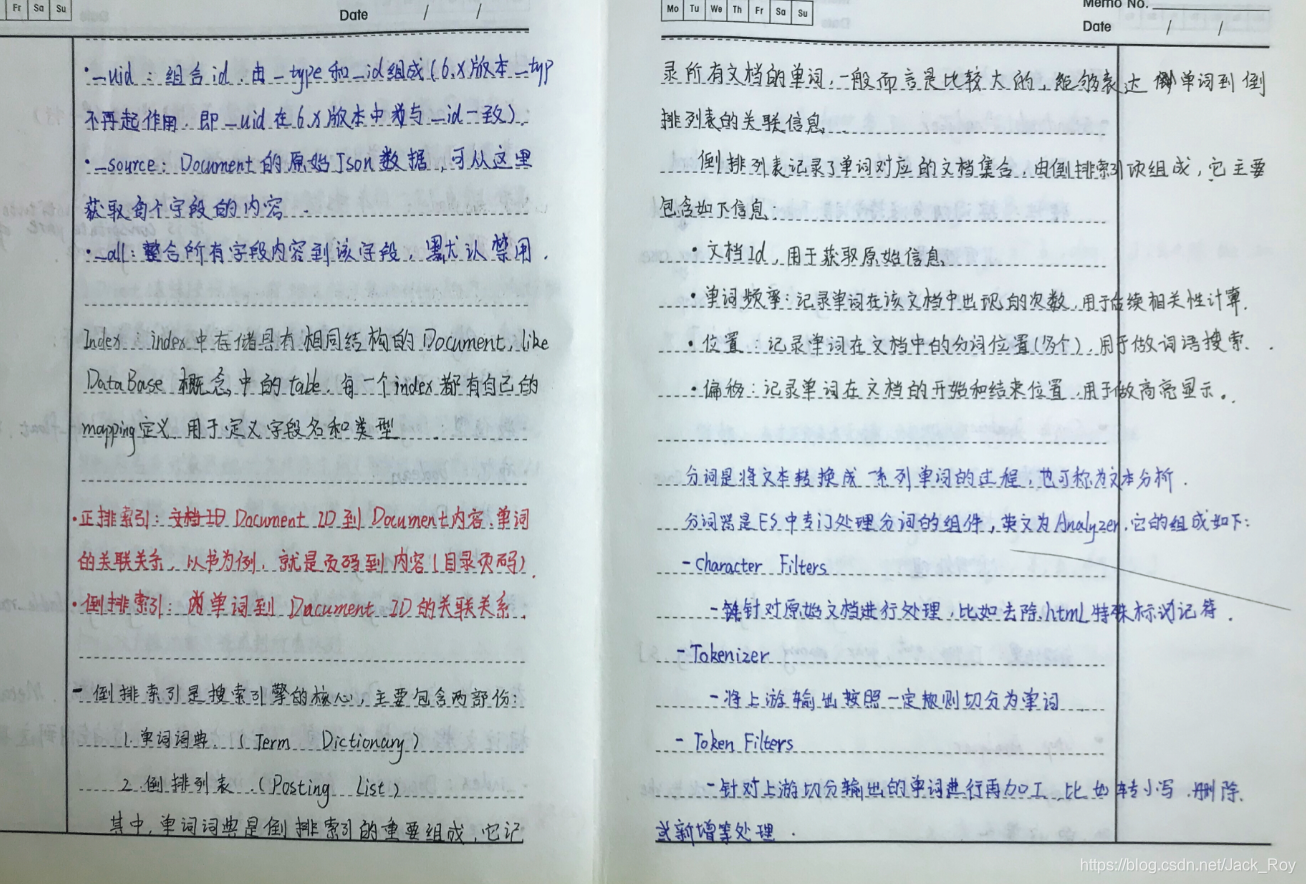 Fr Sa Su
Date / /
·_uid：组合id，由_type和_id组成（6.x版本_typ
不再起作用，即_uid在6.x版本中与_id一致）
·_source：Document的原始Json数据，可从这里
获取各个字段的内容．
·_all：整合所有字段内容到该字段，默认禁用．
Index index中存储具有相同结构的Document，like
DataBase 概念中的table，每一个index都有自己的
mapping定义 用于定义字段名和类型．
·正排索引：文档ID Document ID到Document内容、单词
的关联关系，以书为例，就是页码到内容（目录页码）．
·倒排索引：单词到 Document ID的关联关系．
- 倒排索引是搜索引擎的核心，主要包含两部份：
1.单词词典．（Term Dictionary）
2.倒排列表（Posting List）
其中，单词词典是倒排索引的重要组成，它记
Mo Tu We Th Fr Sa Su
Memo No.
Date / /
录所有文档的单词，一般而言是比较大的，能够表达单词到倒
排列表的关联信息
倒排列表记录了单词对应的文档集合，由倒排索引项组成，它主要
包含如下信息．
·文档Id，用于获取原始信息
·单词频率：记录单词在该文档中出现的次数，用于后续相关性计算．
·位置：记录单词在文档中的分词位置（多个），用于做词语搜索．
·偏移：记录单词在文档的开始和结束位置，用于做高亮显示．
分词是将文本转换成一系列单词的过程，也可称为文本分析．
分词器是ES中专门处理分词的组件，英文为Analyzer，它的组成如下：
-Character Filters
-针对原始文档进行处理，比如去除html特殊标记符．
-Tokenizer
-将上游输出按照一定规则切分为单词
-Token Filters
-针对上游切分输出的单词进行再加工，比如转小写、删除、
或新增等处理．
https://blog.csdn.net/Jack_Roy